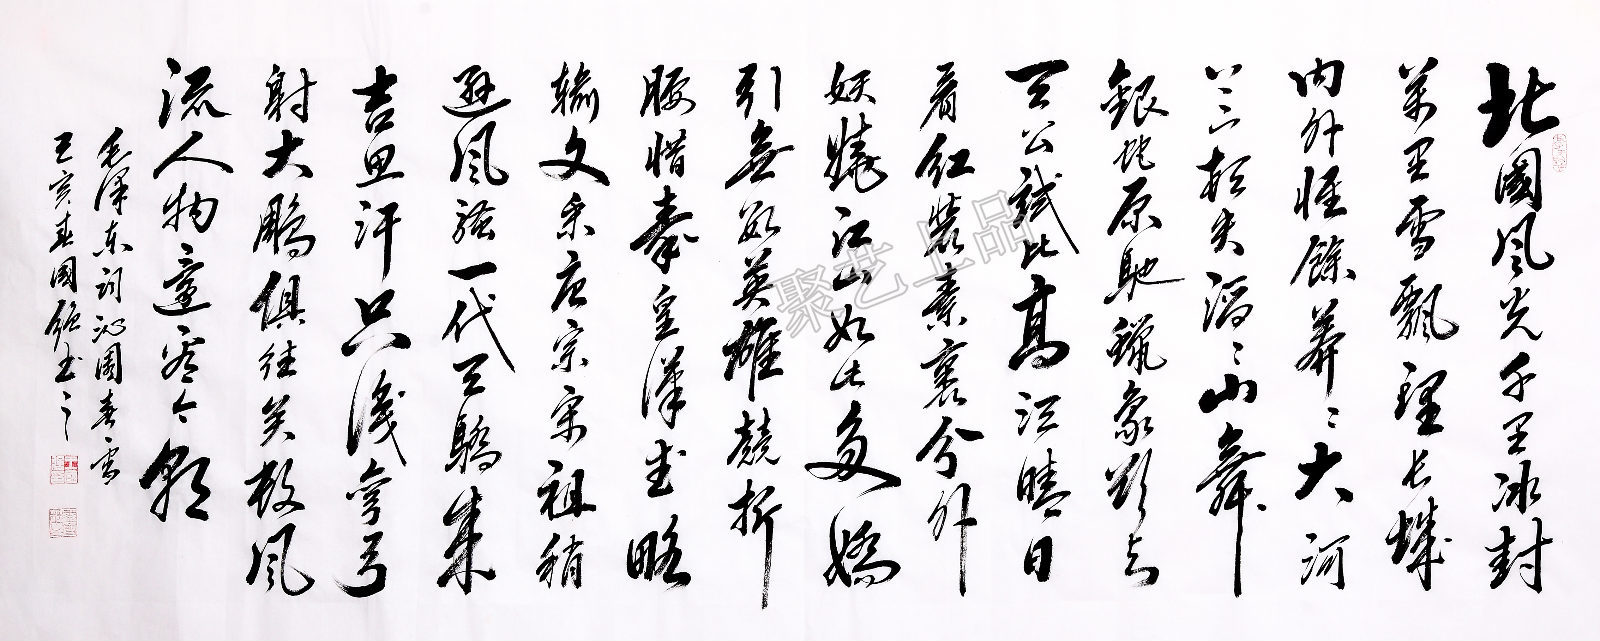 北國風光千里冰封
萬里雪飄望長城
内外惟餘莽々大河
上下頓失滔々山舞
銀蛇原馳蠟象欲与
天公試比高須晴日
看红裝素裹分外
妖嬈江山如此多嬌
引無數英雄競折
腰惜秦皇漢武略
輸文采唐宗宋祖稍
遜風騷一代天驕成
吉思汗只識彎弓
射大鵰俱往矣數風
流人物還看今朝
毛澤東詞沁園春雪
亥春國強书之
聚艺上品